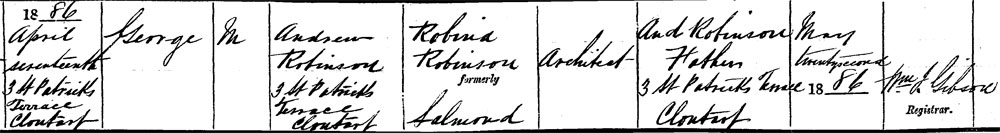 1886
April
seventeenth
3 St Patricks
Terrace
Clontarf
George
M
Andrew
Robinson
3 St Patricks
Terrace
Clontarf
Robina
Robinson
formerly
Salmond
Architect
And Robinson
Father
3 St Patricks Terrace
Clontarf
May
twentysecond
1886
Wm J. Gibson
Registrar.